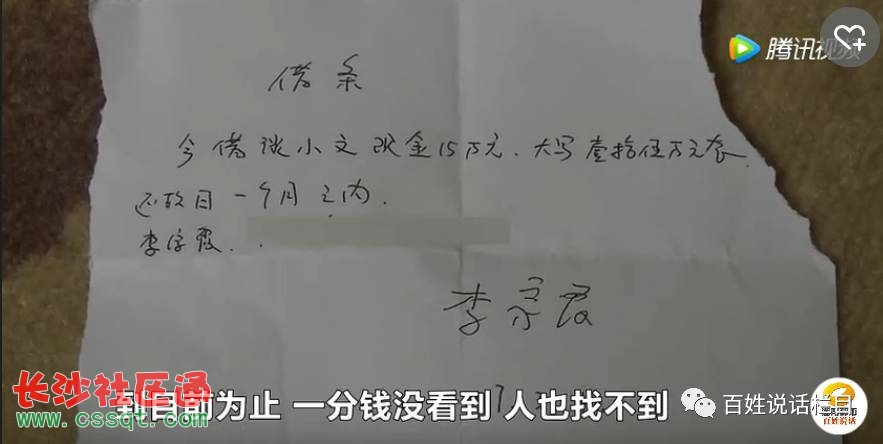 腾讯视频
借条
今借谈小文现金15万元、大写壹拾伍万元
还款日一个月之内.
李
李
到目前为止 一分钱没看到 人也找不到
长沙社区通
www.cssqt.com
百姓说话栏目
百姓说话